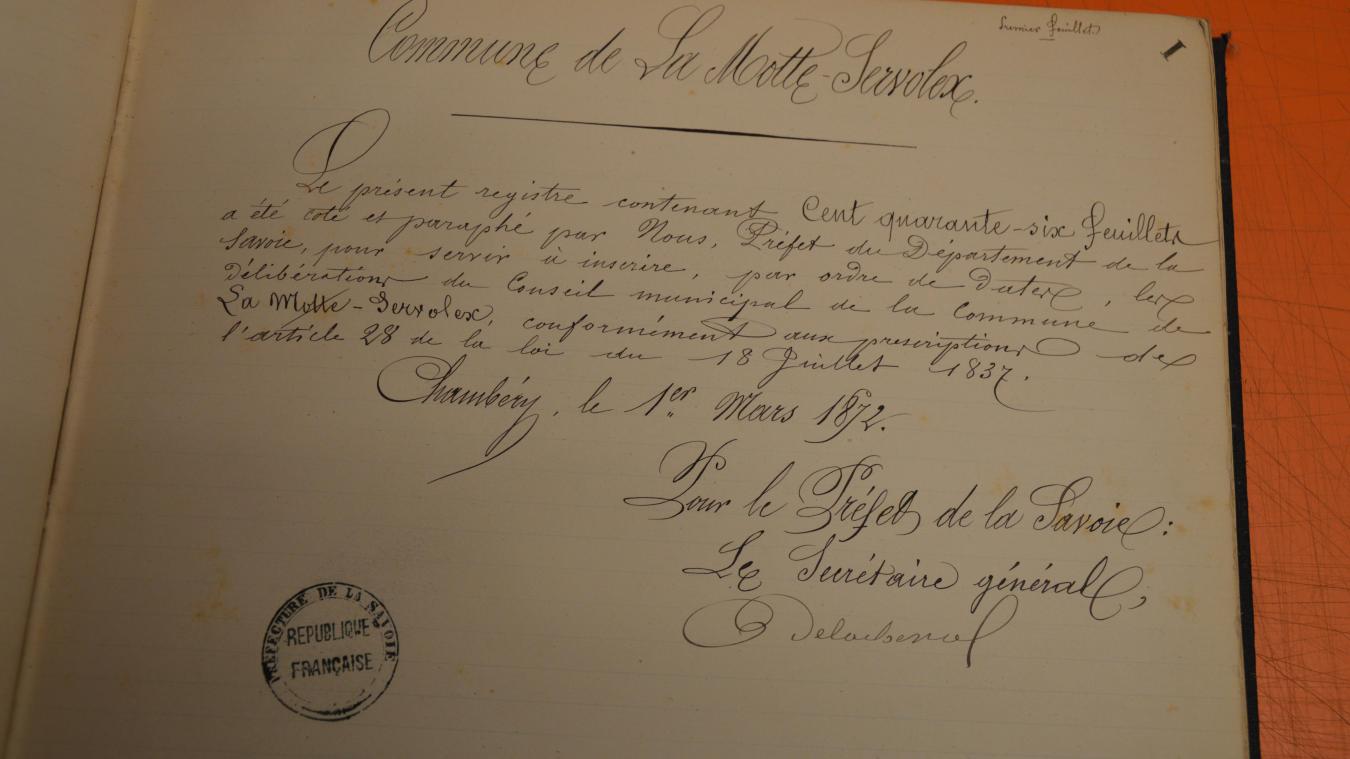 Premier feuillet.
I
Commune de La Motte-Servolex.
Le présent registre contenant Cent quarante-six feuillets
a été coté et paraphé par Nous, Préfet du Département de la
Savoie, pour servir à inscrire, par ordre de dates, les
délibérations du Conseil municipal de la Commune de
La Motte-Servolex, conformément aux prescriptions de
l'article 28 de la loi du 18 Juillet 1837.
Chambéry, le 1er Mars 1872.
Pour le Préfet de la Savoie:
Le Secrétaire général,
PRÉFECTURE DE LA SAVOIE
REPUBLIQUE
FRANÇAISE